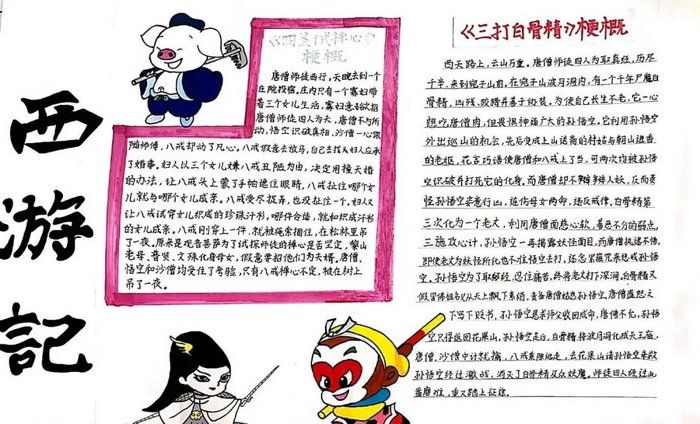 西
游
記
《四圣试禅心》
梗概
唐僧师徒西行，天晚去到一个
庄院投宿，庄内只有一个寡妇带
着三个女儿生活，寡妇意欲招
唐僧师徒四人为夫，唐僧不为所
动，悟空识破真相，沙僧一心跟
随师傅，八戒却动了凡心。八戒假意去放马，自己去找妇人应承
了婚事。妇人以三个女儿嫌八戒丑陋为由，决定用撞天婚
的办法，让八戒头上蒙了手帕遮住眼睛，八戒拉住哪个女
儿，就与哪个女儿成亲。八戒受尽捉弄，也没拉住一个。妇人又
让八戒试穿女儿织成的珍珠汗衫，哪件合适，就和织成汗衫
的女儿成亲。八戒刚穿上一件，就被绳索捆住，在松林里吊
了一夜。原来是观音菩萨为了试探师徒的禅心是否坚定，黎山
老母、普贤、文殊化身母女，假意要招他们为夫婿，唐僧、
悟空和沙僧均受住了考验，只有八戒禅心不定，被在树上
吊了一夜。
《三打白骨精》梗概
西天路上，云山万重。唐僧师徒四人为取真经，历尽
千辛，来到宛子山前。在宛子山波月洞内，有一个千年尸魔白
骨精，凶残、狡猾并善于伪装，为使自己长生不老，它一心
想吃唐僧肉，但畏惧神通广大的孙悟空。它利用孙悟空
外出巡山的机会，先后变成上山送斋的村姑与朝山进香
的老妪，花言巧语使唐僧和八戒上了当，可两次均被孙悟
空识破并打死它的化身。而唐僧却不辨人妖，反而责
怪孙悟空恣意行凶，连伤母女两命，违反戒律。白骨精第
三次化为一个老丈，利用唐僧面慈心软、善恶不分的弱点，
三施攻心计，孙悟空一再揭露妖怪面目，而唐僧执迷不悟，
即使老丈为妖怪所化也不准悟空去打，还念紧箍咒惩戒孙悟
空。孙悟空为了取经，忍住痛苦，终将老丈打下深涧。白骨精又
假冒佛祖名义从天上飘下素绢，责备唐僧姑息孙悟空，唐僧
下写下贬书，孙悟空恳求师父收回成命，唐僧不允，孙悟
空只得返回花果山。孙悟空走后，白骨精将波月洞化成天王庙，
唐僧、沙僧中计就擒，八戒乘隙逃走，去花果山请孙悟空来救
孙悟空经过激战，消灭了白骨精及众妖魔。师徒四人经过此
番磨难，重又踏上征途。